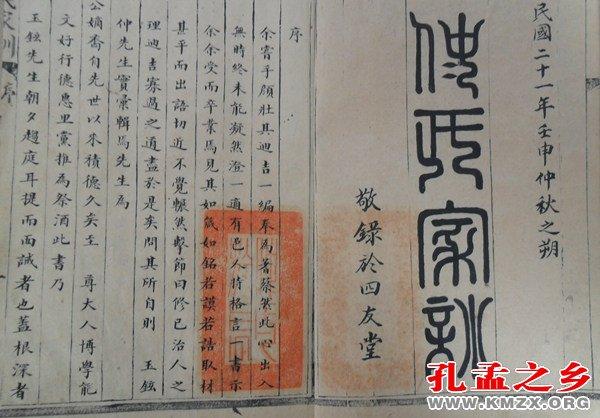 民國二十一年壬申仲秋之朔
仲氏家訓
敬錄於四友堂
序
余嘗手顧壯其迪吉一編奉為蓍蔡然此心出入
無時終未能凝然澄一適有邑人持格言一書示
余余受而卒業焉見其如箴如銘若謨若誥取材
甚平而出語切近不覺囅然擊節曰修己治人之
理迪吉寡過之道盡於是矣問其所自則 玉鉉
仲先生實彙輯焉先生為
公嫡裔自先世以來積德久矣至 尊大人博學能
文好行德惠里黨推為祭酒此書乃
玉鉉先生朝夕趨庭耳提而面誡者也蓋根深者
氏家訓 序
孔孟之乡
WWW.KMZX.ORG